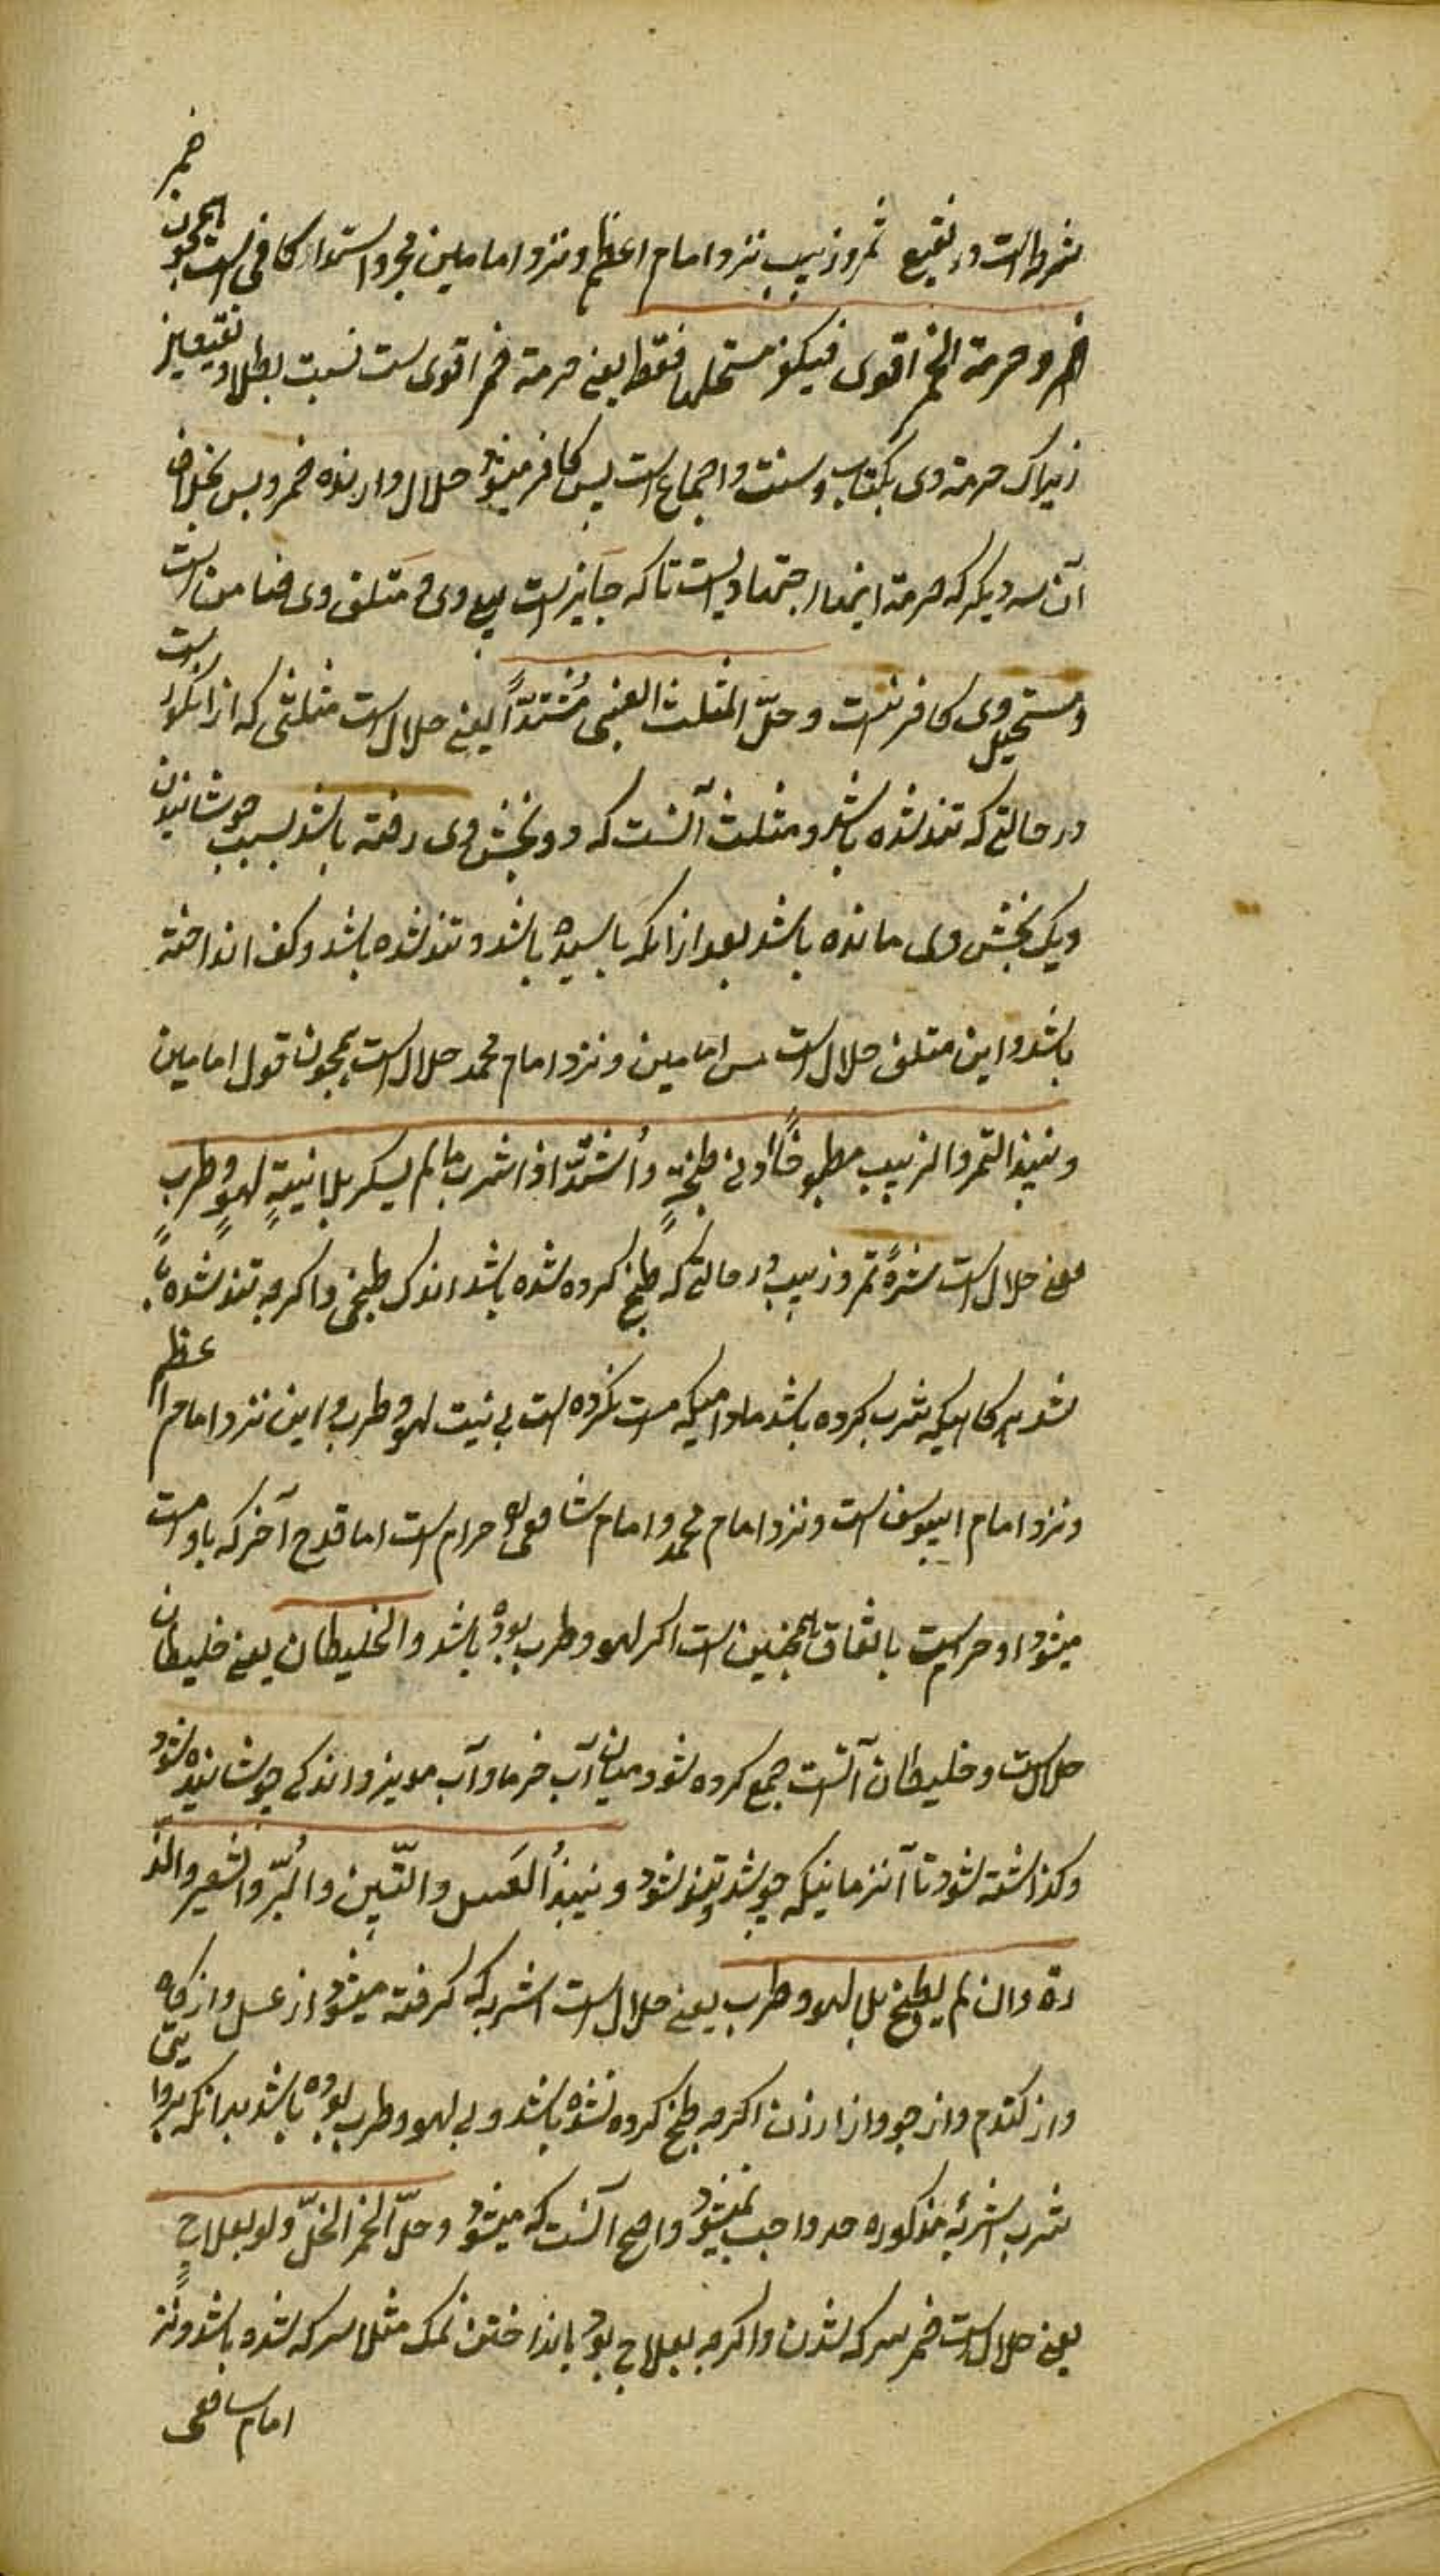 شرط است در نقیع تمر و زبیب نزد امام اعظم و نزد امامین مجرد اشتداد کافی است همچون خمر
خمر و حرمة الخمر اقوی فیکفر مستحلها فقط یعنی حرمة خمر اقوی ست نسبت بطلا و نقیعین
زیراک حرمة وی بکتاب و سنت و اجماع است پس کافر میشود حلال دارنده خمر و بس بخلاف
آن سه دیگر که حرمة اینها اجتهادیست تا که جایز است بیع وی و متلف وی ضامن است
و مستحیل وی کافر نیست و حلّ المثلث العنبی مُشتدّاً یعنی حلال است مثلثی که از انگورست
در حالتی که تند شده باشد و مثلث آنست که دو بخش وی رفته باشد بسبب جوشانیدن
و یک بخش وی مانده باشد بعد از انکه باسیده باشد و تند شده باشد و کف انداخته
باشد و این مثلث حلال است امامین و نزد امام محمد حلال است همچون قول امامین
و نبیذ التمر و الزبیب مطبوخاً ادنی طبخةٍ و اُشتدّ اذا شرب ما لم یسکر بلا نیةٍ لهوٍ و طربٍ
یعنی حلال است شربة تمر و زبیب در حالتی که طبخ کرده شده باشد اندک طبخی و اکرچه تند شده با
شد هرکاهیکه شرب کرده باشد مادامیکه مست نکرده است بی نیت لهو و طرب و این نزد امام اعظم
و نزد امام ابیوسف است و نزد امام محمد و امام شافعی حرام است اما قدح آخر که باو مست
میشود او حرامست باتفاق همچنین است اکر لهو و طرب بوده باشد و الخلیطان یعنی خلیطان
حلالست و خلیطان آنست جمع کرده شود میان آب خرما و آب مویز و اندکی جوشانیده شود
و کذاشته شود تا آنزمانیکه جوشد و تیز شود و نبیذُ العَسل و التّین و البُرّ و الشعیر و الذّ
رة و ان لم یطبخ بلا لهو و طرب یعنی حلال است اشربه که کرفته میشود از عسل و از
و از کندم و از جو و از ارزن اکرچه طبخ کرده نشده باشد و بی لهو و طرب بوده باشد بدانکه
شرب اشربه مذکوره حد واجب نمیشود و اصح آنست که میشود و حلّ الخمر الخلّ و لو بعلاجٍ
یعنی حلال است خمر سرکه شدن و اکرچه بعلاج بود بانداختن نمک مثلا سرکه شده باشد و نز
امام شافعی